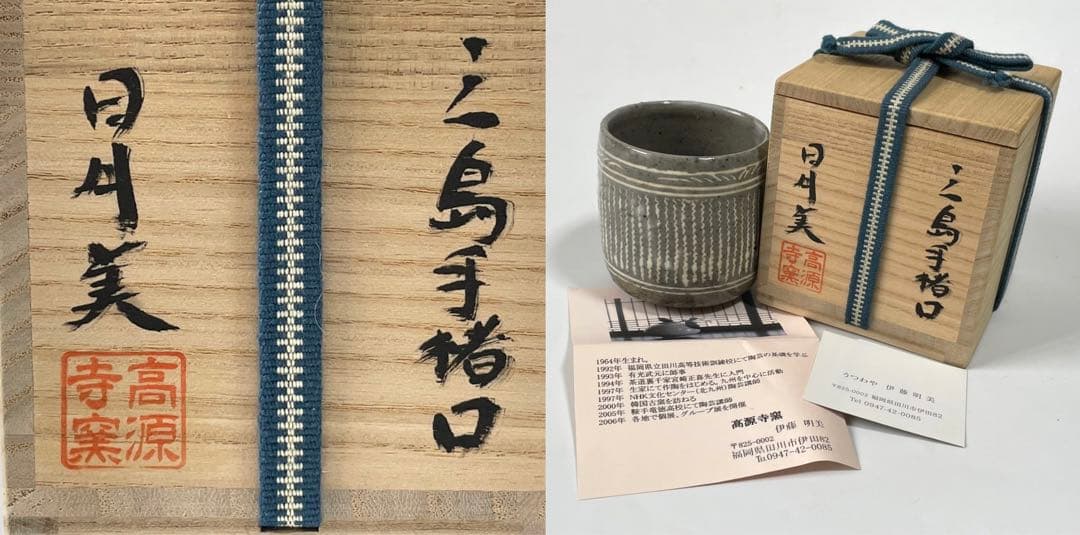 三島手猪口
明美
高源寺窯
三島手猪口
明美
高源寺窯
1964年生まれ。
1992年 福岡県立田川高等技術訓練校にて陶芸の基礎を学ぶ
1993年 有光武元に師事
1994年 茶道裏千家宮崎正喜先生に入門
1997年 生家にて作陶をはじめる。九州を中心に活動
1997年 NHK文化センター(北九州)陶芸講師
2000年 韓国古窯を訪ねる
2005年 鞍手竜徳高校にて陶芸講師
2006年 各地で個展、グループ展を開催
高源寺窯
伊藤 明美
〒825-0002
福岡県田川市伊田82
Tel.0947-42-0085
うつわや 伊藤明美
〒825-0002 福岡県田川市伊田82
Tel 0947-42-0085